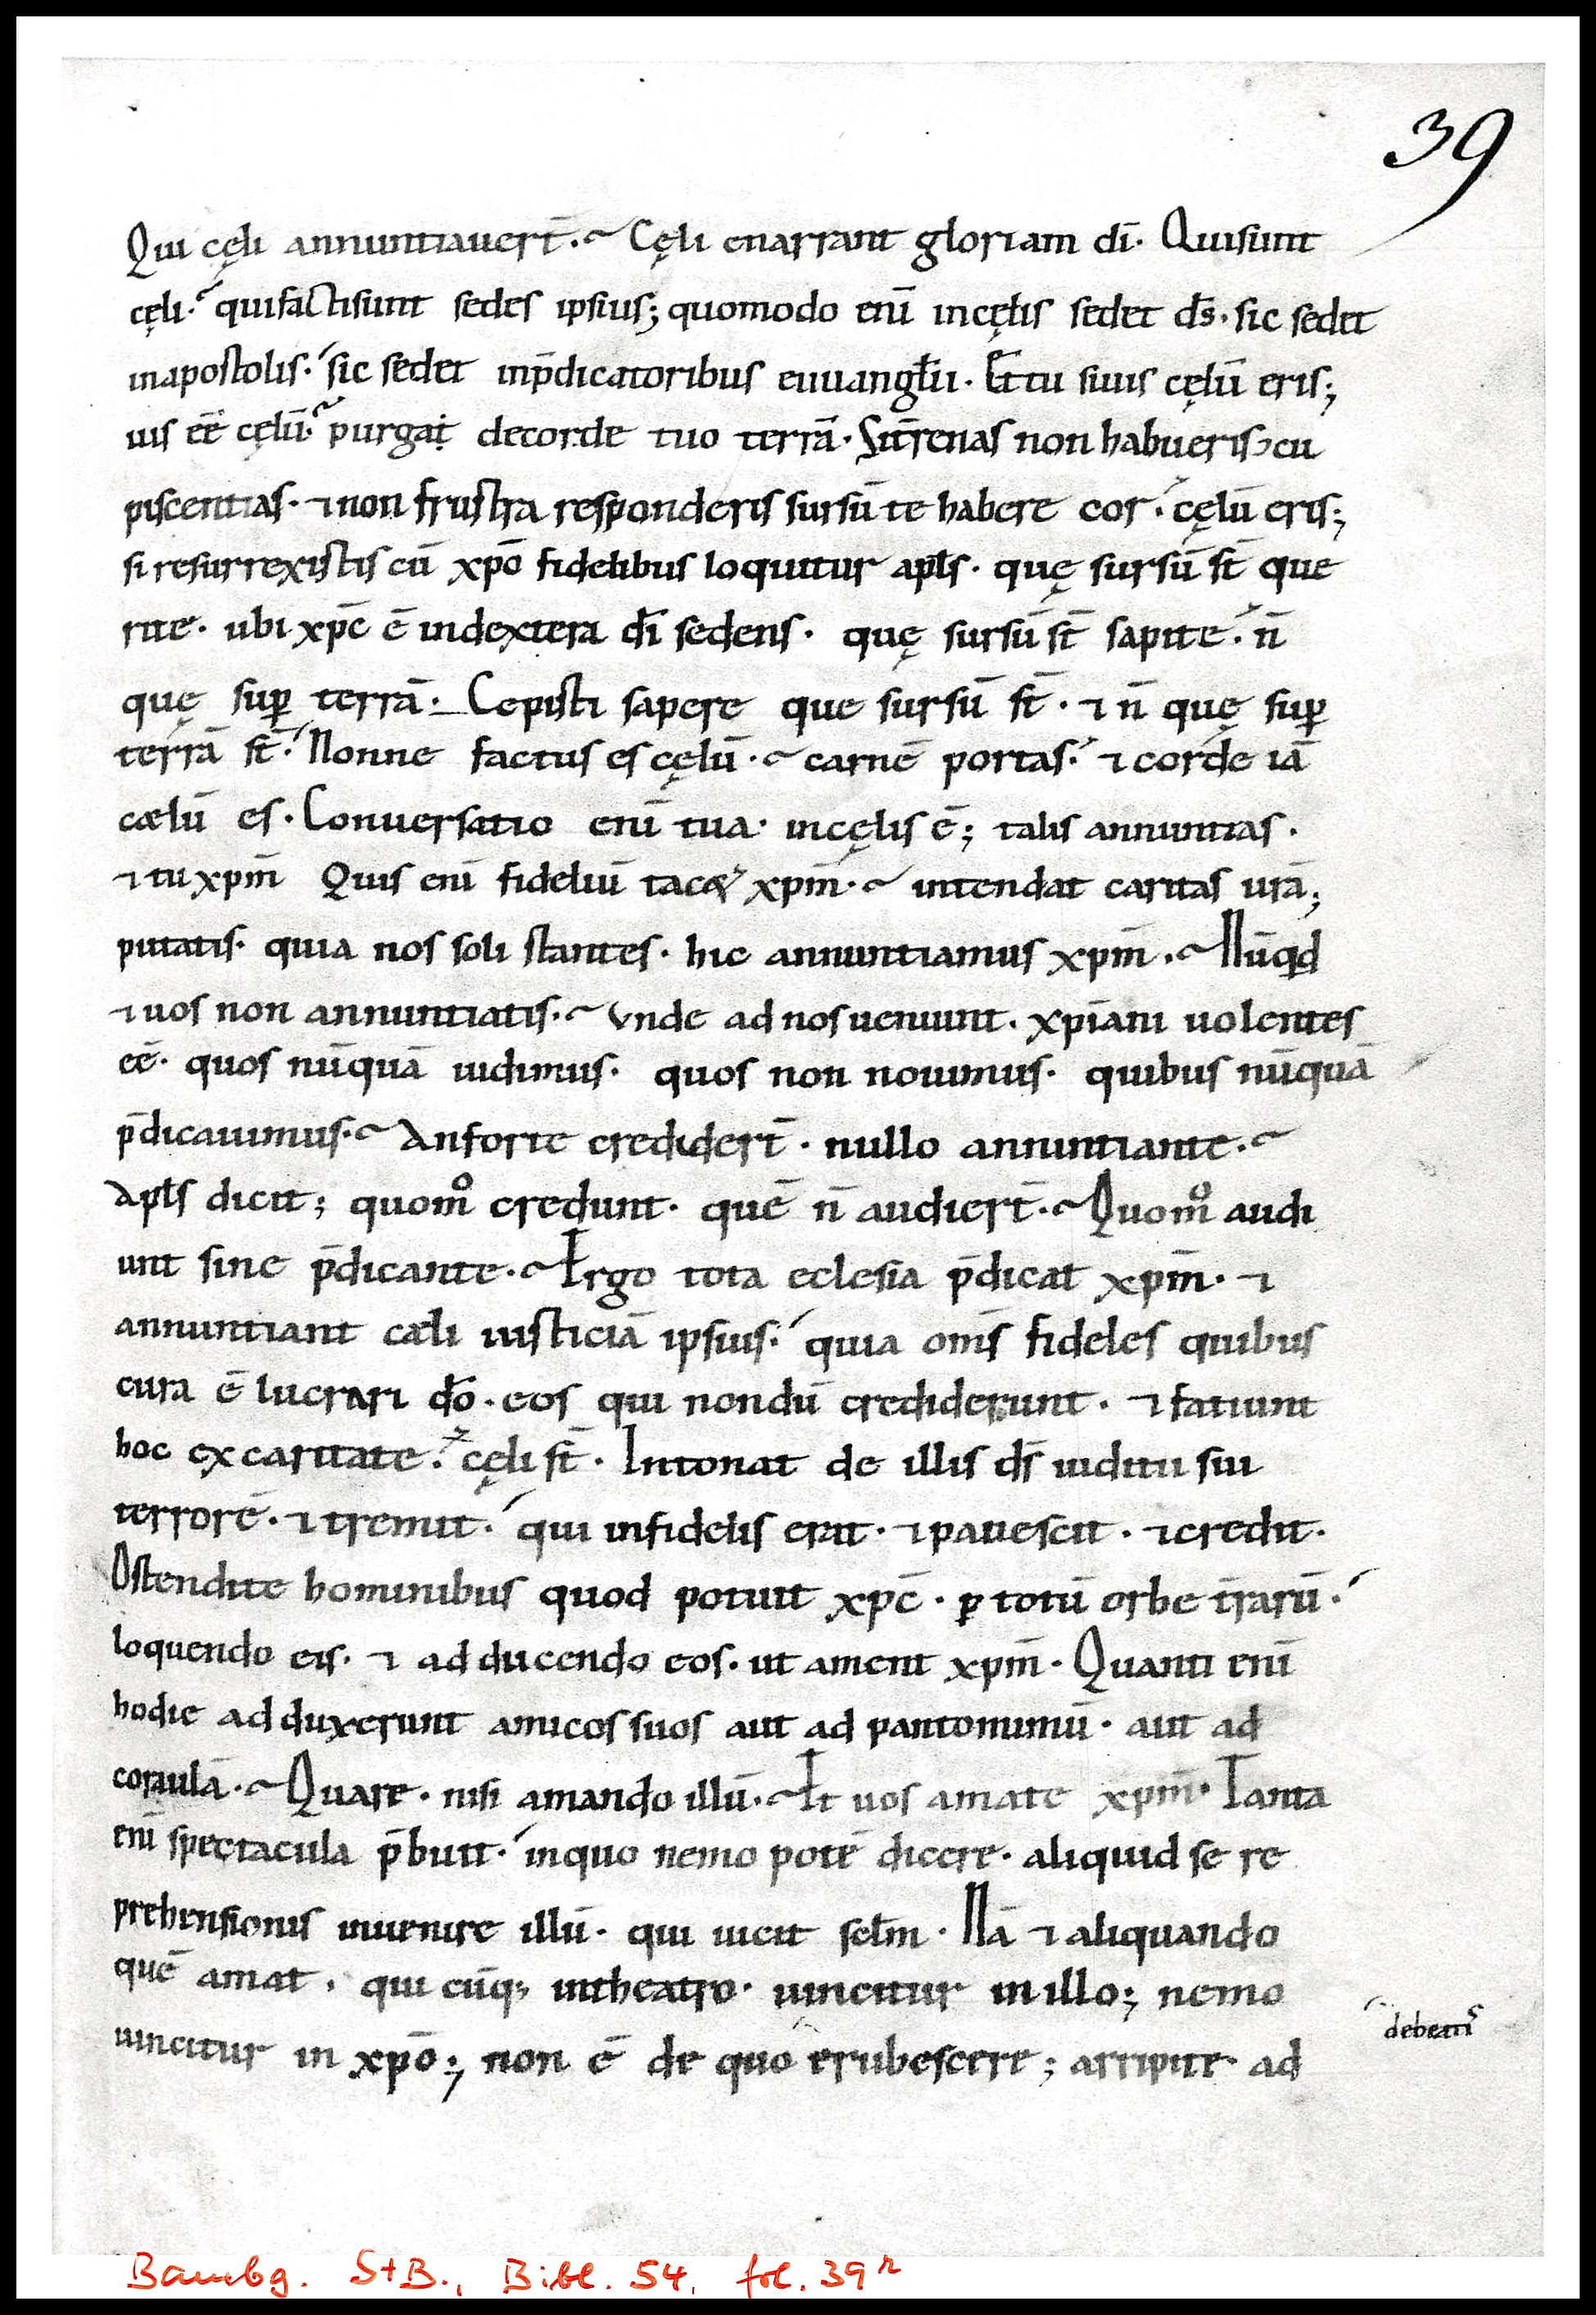 39
Qui cęli annuntiauert̄. Cęli enarrant gloriam dī. Quisunt
cęli. quifactisunt sedes ipsius; quomodo enī incęlis sedet ds̄. sic sedet
inapostolis. sic sedet inp̄dicatoribus euuangl̄ii. Et tu siuis cęlū eris;
uis eē cęlū. purgaṭ decorde tuo terrā. Sit̄renas non habueris ɔcu
piscentias. ⁊ non frustra responderis sursū te habere cor. cęlū eris;
si resurrexistis cū xp̄o fidelibus loquitur apl̄s. quę sursū st̄ que
rite. ubi xp̄c ē indextera dī sedens. quę sursū st̄ sapite. n̄
quę sup̱ terrā. Cepisti sapere que sursū st̄. ⁊ n̄ quę sup̱
terrā st̄. Nonne factus es cęlū. carnē portas. ⁊ corde iā
cælū es. Conuersatio enī tua. incęlis ē; talis annuntias.
⁊ tu xpm̄ Quis enī fideliū tacet xpm̄. intendat caritas urā;
putatis. quia nos soli stantes. hic annuntiamus xpm̄. Nūqd
⁊ uos non annuntiatis. Vnde ad nos ueniunt. xpīani uolentes
eē. quos nūquā uidimus. quos non nouimus. quibus nūquā
p̄dicauimus. Anforte credidert̄. nullo annuntiante.
Apl̄s dicit; quom̊ credunt. quē n̄ audiert̄. Quom̊ audi
unt sine p̄dicante. Ergo tota eclesia p̄dicat xpm̄. ⁊
annuntiant cæli iusticiā ipsius. quia om̄s fideles quibus
cura ē lucrari dō. eos qui nondū crediderunt. ⁊ fatiunt
hoc ex caritate. cęli st̄. Intonat de illis ds̄ iuditii sui
terrorē. ⁊ tremit. qui infidelis erat. ⁊ pauescit. ⁊ credit.
Ostendite hominibus quod potuit xp̄c. p̱ totū orbe t̄rarū.
loquendo eis. ⁊ ad ducendo eos. ut ament xpm̄. Quanti enī
hodie ad duxerunt amicos suos aut ad pantomimū. aut ad
coraulā. Quare. nisi amando illū. Et uos amate xpm̄. Tanta
enī spectacula p̄buit. inquo nemo potē dicere. aliquid se re
prehensionis inuenire illū. qui uicit sclm̄. Nā ⁊ aliquando
quē amat. qui cūq; intheatro. uincitur in illo; nemo
debetis
uincitur in xp̄o; non ē de quo erubescere; arripite ad
Bambg. StB., Bibl. 54, fol. 39r